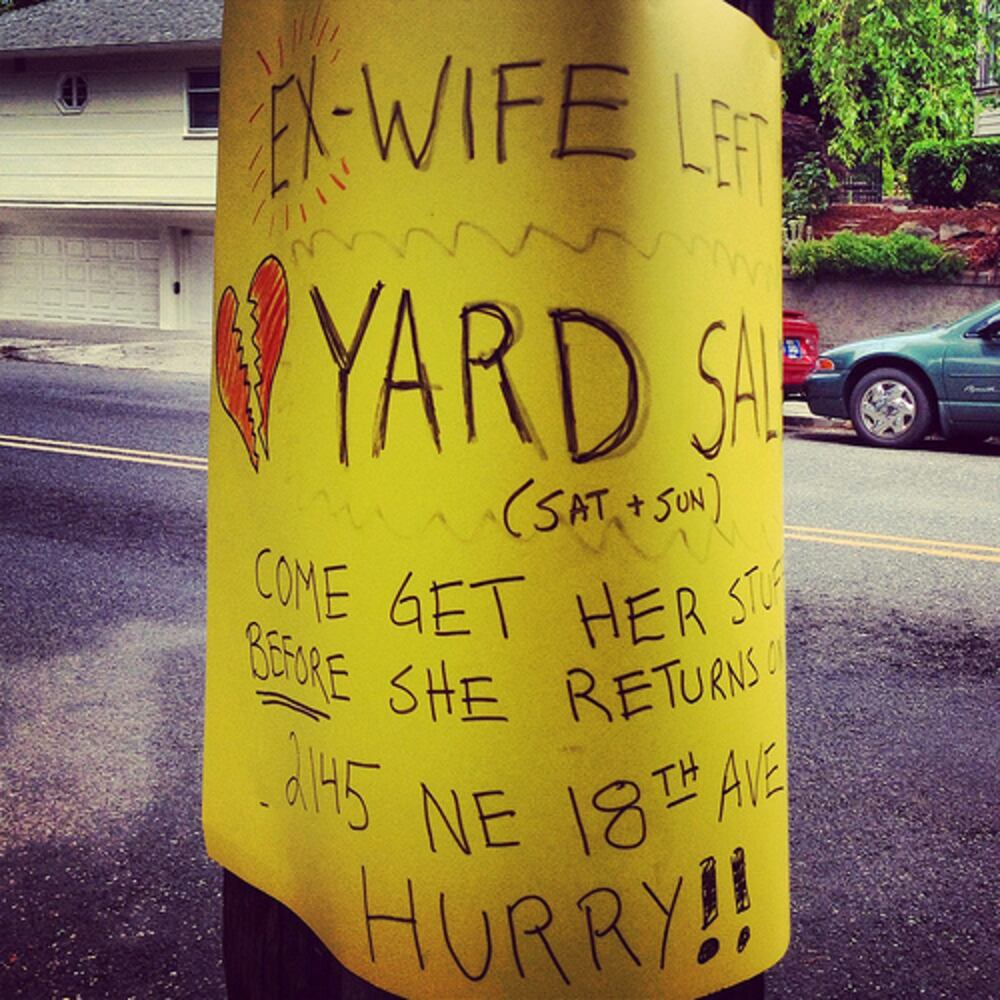 EX-WIFE LEFT
YARD SAL
(SAT + SUN)
COME GET HER STUF
BEFORE SHE RETURNS
2145 NE 18TH AVE
HURRY!!